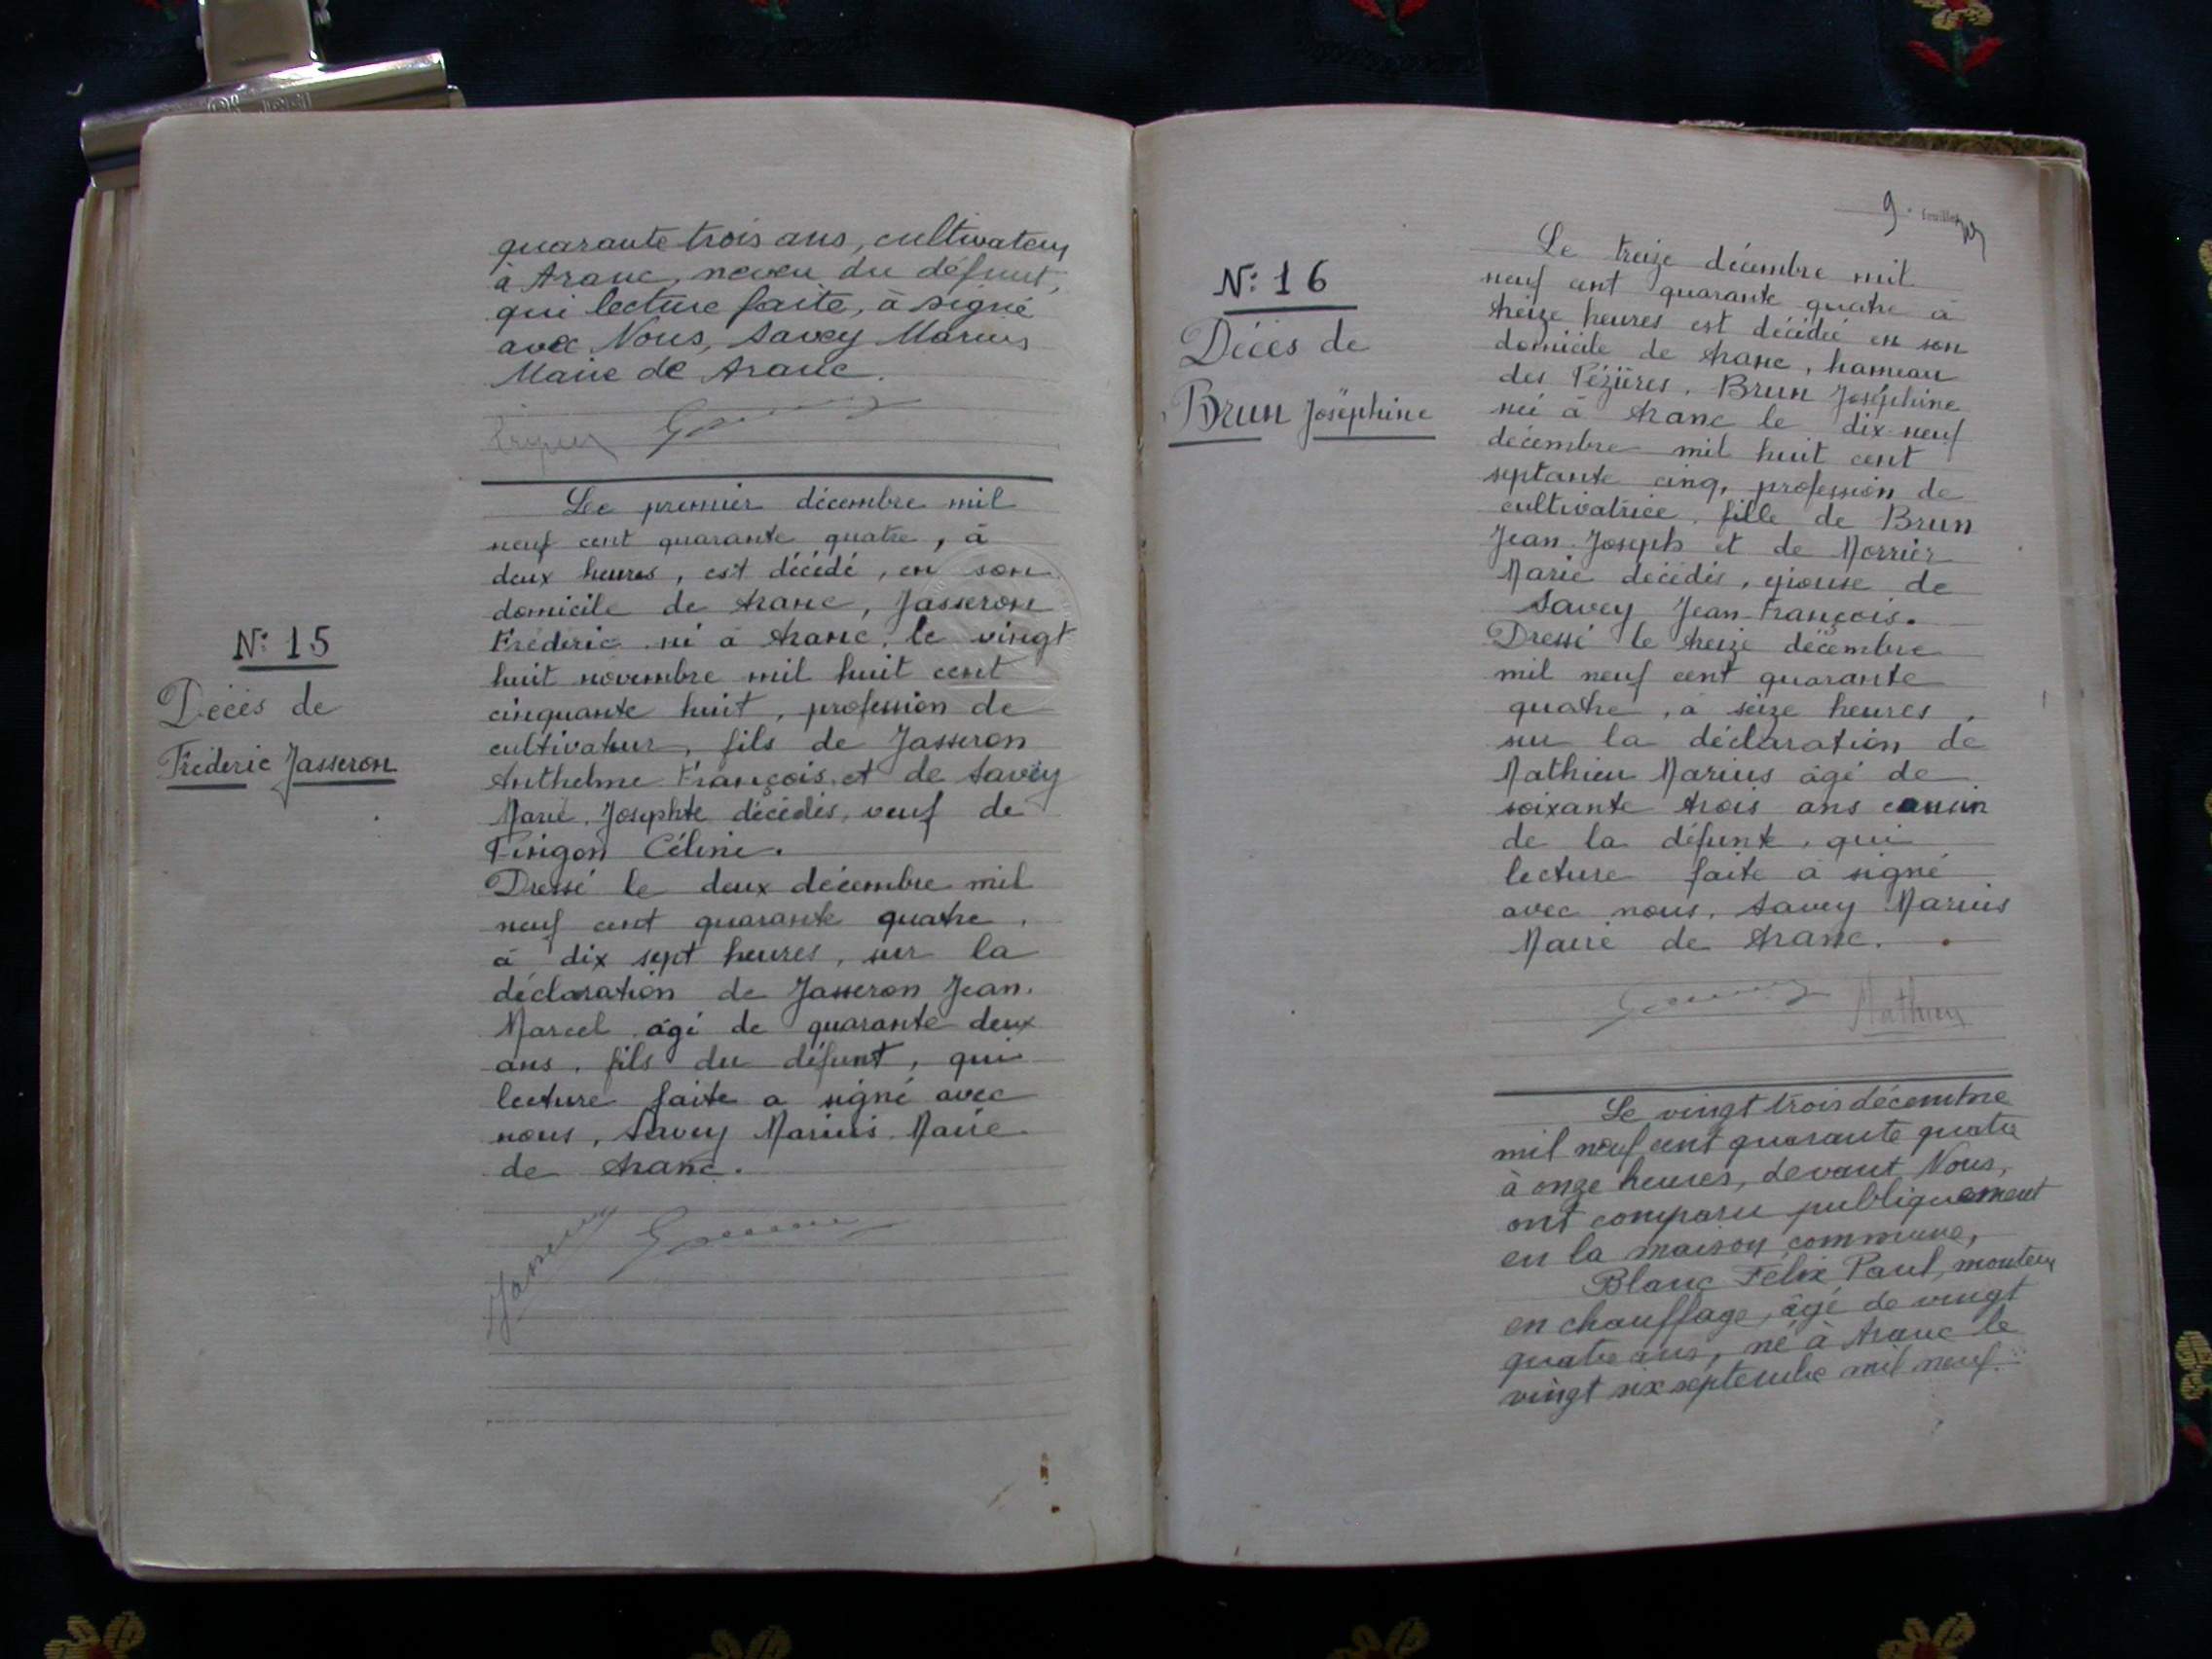 quarante trois ans, cultivateur
à Aranc, neveu du défunt,
qui lecture faite, à signé
avec Nous, Savey Marius
Maire de Aranc.
N: 15
Décès de
Fréderic Jasseron
Le premier décembre mil
neuf cent quarante quatre, à
deux heures, est décédé, en son
domicile de Aranc, Jasseron
Fréderic né à Aranc, le vingt
huit novembre mil huit cent
cinquante huit, profession de
cultivateur, fils de Jasseron
Anthelme François et de Savey
Marie Josephte décédés, veuf de
Céline.
Dressé le deux décembre mil
neuf cent quarante quatre,
à dix sept heures, sur la
déclaration de Jasseron Jean.
Marcel âgé de quarante deux
ans, fils du défunt, qui
lecture faite a signé avec
nous, Savey Marius Maire
de Aranc.
9
N: 16
Décès de
Brun Joséphine
Le treize décembre mil
neuf cent quarante quatre à
treize heures est décédée en son
domicile de Aranc, hameau
des Pézières. Brun Joséphine
née à Aranc le dix-neuf
décembre mil huit cent
septante cinq, profession de
cultivatrice, fille de Brun
Jean Joseph et de
Marie décédés, épouse de
Savey Jean-François.
Dressé le treize décembre
mil neuf cent quarante
quatre, à seize heures,
sur la déclaration de
Mathieu Marius âgé de
soixante trois ans cousin
de la défunte, qui
lecture faite a signé
avec nous, Savey Marius
Maire de Aranc.
Mathieu
Le vingt trois décembre
mil neuf cent quarante quatre
à onze heures, devant Nous,
ont comparu publiquement
en la maison commune,
Blanc Félix Paul, monteur
en chauffage, âgé de vingt
quatre ans, né à Aranc le
vingt six septembre mil neuf